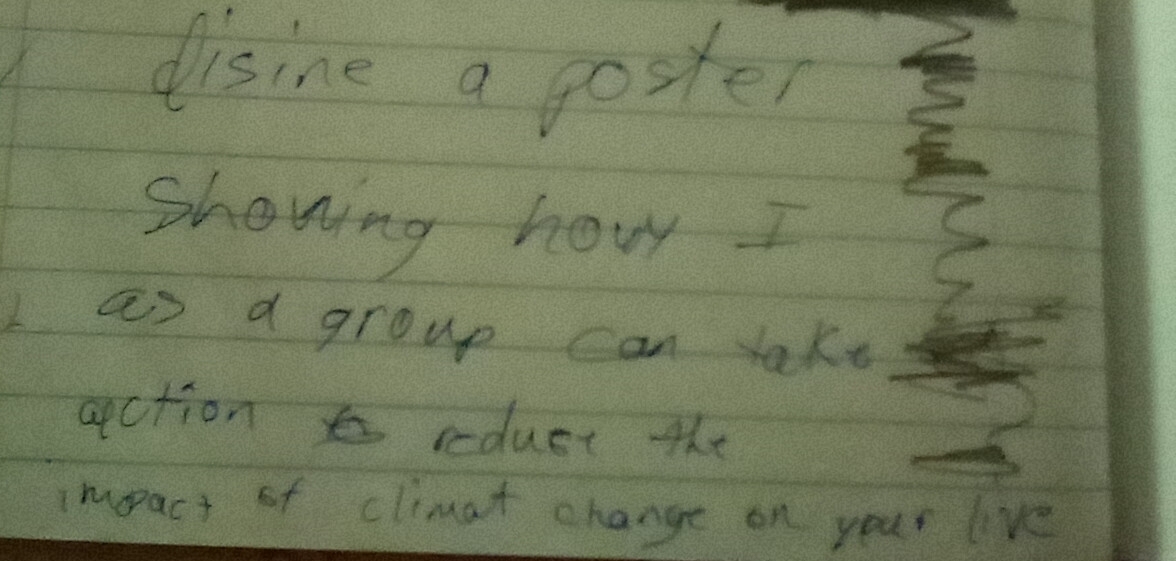 disine a poster
Showing how I
as a group can take
action to reduse the
impact of climat change on your live